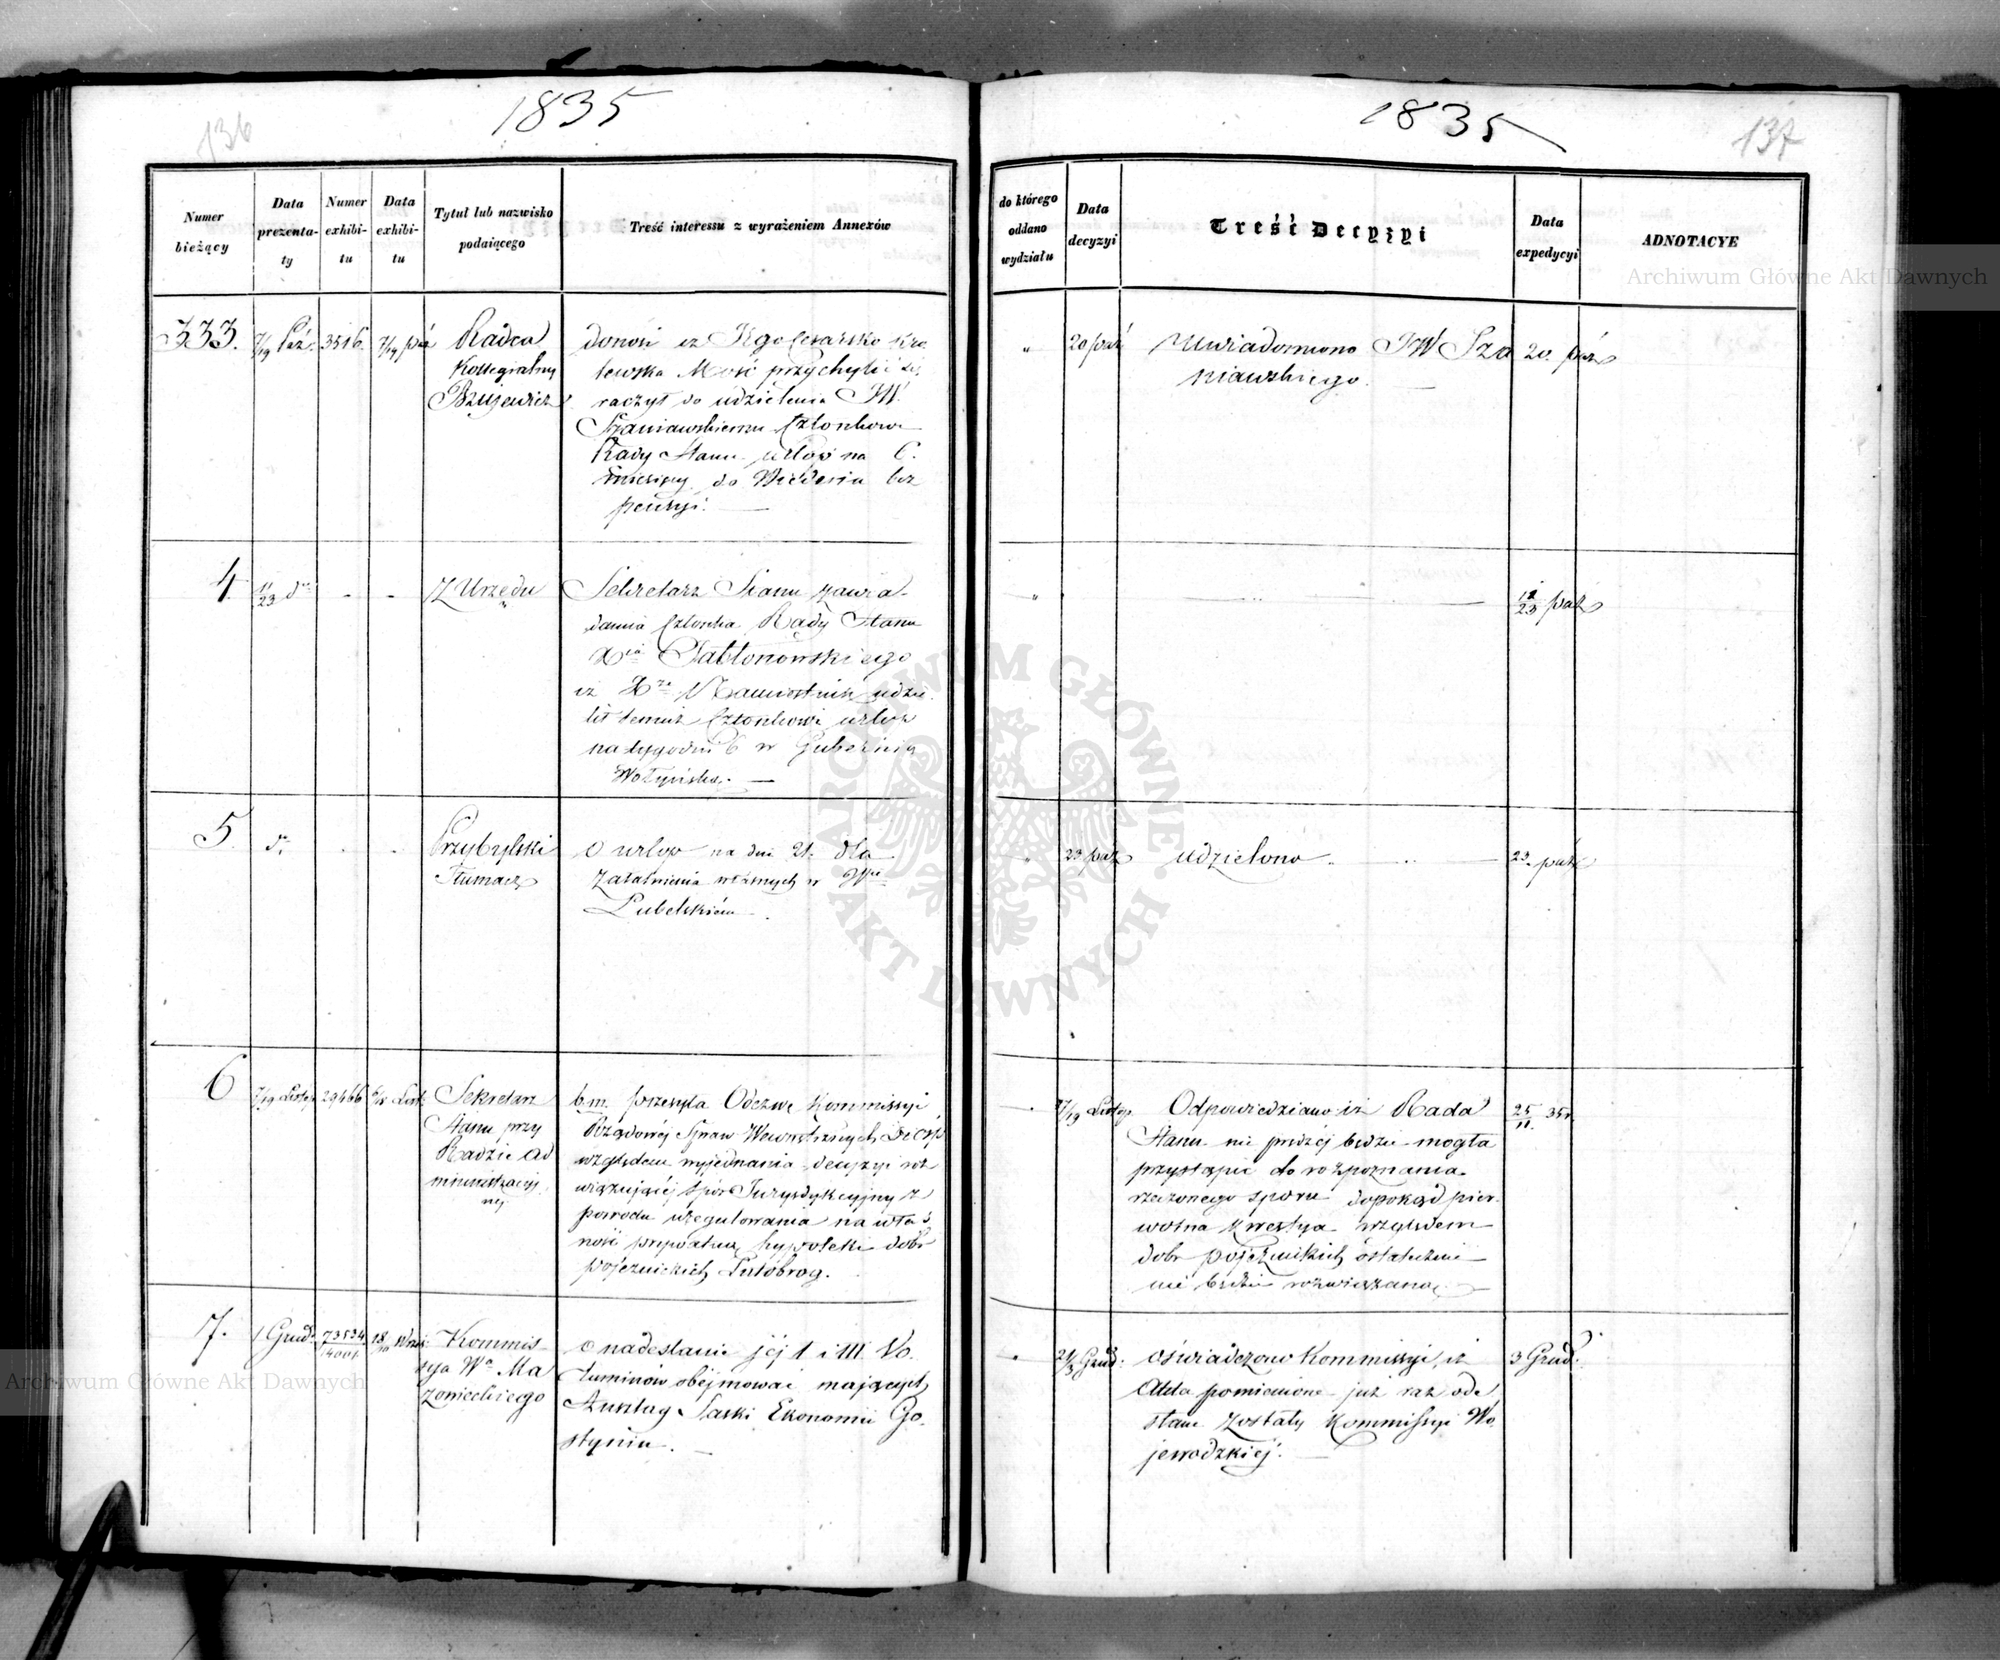 136
1835
Numer bieżący
Data prezenta-ty
Numer exhibi-tu
Data exhibi-tu
Tytuł lub nazwisko podaiącego
Treść interessu z wyrażeniem Annexów
333.
7/19 Paź.
3516.
7/19 paź
Radca
Kollegialny
donosi iż Jego Cesarsko Kró
lewska Mość przychylić się
raczył do udzielenia JW.
Szaniawskiemu Członkowi
Rady Stanu urlop na 6.
miesięcy do Wiednia bez
pensyi.
4.
11/23 do
-
-
Z Urzędu
Sekretarz Stanu zawia-
damia Członka Rady Stanu
Xcia Jabłonowskiego
iż Xże Namiestnik udzie
lił temuż Członkowi urlop
na tygodni 6 w Gubernią
Wołyńską.
5.
do
-
-
Przybylski
Tłumacz
O urlop na dni 21. dla
załatwienia własnych w
Lubelskiém
6
7/19 Listop
29466
Sekretarz
Stanu przy
Radzie Ad
ministracyj
néj
b.m. przesyła Odezwę Kommissyi
Rządowéj Spraw Wewnętrznych
względem wyjednania decyzyi roz
wiązującéj spór Jurysdykcyjny z
powodu uregulowania na włas
ność prywatną hypoteki dobr
pojezuickich Lutobrog.
7.
1 Grud.
73534/14001
Kommis
sya Wa Ma
zowieckiego
O nadesłanie jéj I i III Vo.
luminów obejmować mających
Anszlag Saski Ekonomii Go.
stynin.
1835
137
do którego oddano wydziału
Data decyzyi
Treść Decyzyi
Data expedycyi
ADNOTACYE
"
20 paź
Uwiadomiono JW Sza
niawskiego.
20. paź
"
11/23 paź
"
23 paź
udzielono
23. paź
7/19 Listop
Odpowiedziano iż Rada
Stanu nie prędzéj będzie mogła
przystąpić do rozpoznania
rzeczonego sporu dopokąd pier.
wotna kwestya względem
dobr pojezuickich ostatecznie
nie będzie rozwiązaną.
25/11 35r.
21/3 Grud:
Oświadczono Kommissyi, iż
Akta pomienione już raz ode
słane zostały Kommissyi Wo
jewodzkiej.
3 Grud.
Archiwum Główne Akt Dawnych
Archiwum Główne Akt Dawnych
ARCHIWUM GŁÓWNE AKT DAWNYCH